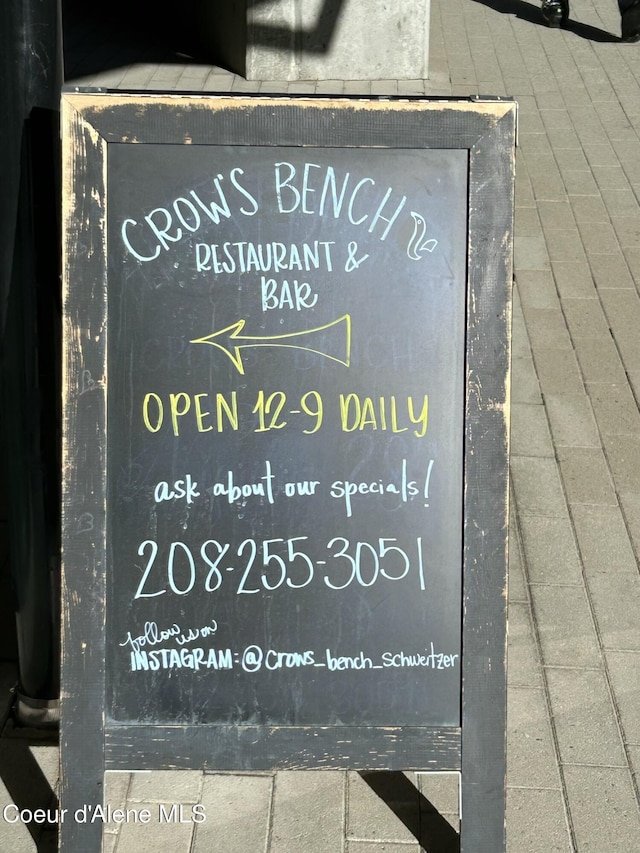 CROW'S BENCH
RESTAURANT &
BAR
OPEN 12-9 DAILY
ask about our specials!
208-255-3051
follow us on
INSTAGRAM: @crows_bench_schweitzer
Coeur d'Alene MLS